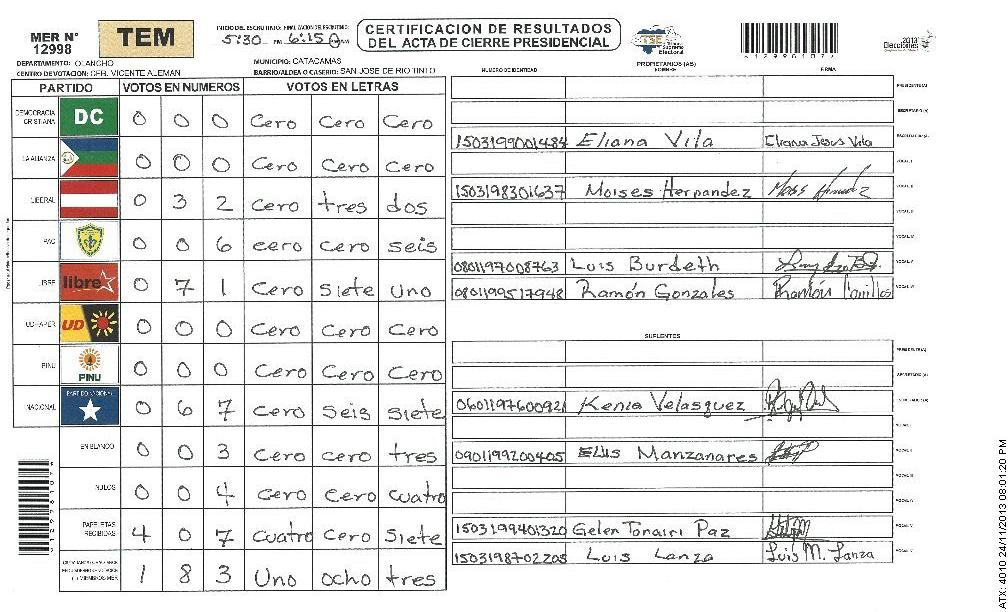 MER N° 12998
TEM
INICIO DEL ESCRUTINIO: FINALIZACION DEL ESCRUTINIO:
5:30 PM 6:15
CERTIFICACION DE RESULTADOS
DEL ACTA DE CIERRE PRESIDENCIAL
TSE
Supremo
Electoral
2013
Elecciones
DEPARTAMENTO: OLANCHO
MUNICIPIO: CATACAMAS
CENTRO DE VOTACION: CEB. VICENTE ALEMAN
BARRIO/ALDEA O CASERIO: SAN JOSE DE RIO TINTO
PROPIETARIOS (AS)
NUMERO DE IDENTIDAD NOMBRE FIRMA
PARTIDO VOTOS EN NUMEROS VOTOS EN LETRAS
DEMOCRACIA CRISTIANA DC 0 0 0 Cero Cero Cero
LA ALIANZA 0 0 0 Cero Cero Cero
LIBERAL 0 3 2 Cero tres dos
PAC 0 0 6 cero cero seis
LIBRE libre 0 7 1 Cero siete uno
UD-FAPER UD 0 0 0 Cero Cero Cero
PINU PINU 0 0 0 Cero Cero Cero
NACIONAL PARTIDO NACIONAL 0 6 7 Cero Seis siete
EN BLANCO 0 0 3 Cero cero tres
NULOS 0 0 4 Cero Cero cuatro
PAPELETAS RECIBIDAS 4 0 7 Cuatro cero Siete
1 8 3 Uno ocho tres
PRESIDENTE(A)
SECRETARIO (A)
1503199001484 Eliana Vila Eliana Jesus Vila
VOCAL I
1503198301637 Moises Hernandez VOCAL II
VOCAL III
VOCAL IV
0801197008763 Luis Burdeth VOCAL V
0801199517948 Ramón Gonzales VOCAL VI
SUPLENTES
PRESIDENTE(A)
0601197600921 Kenia Velasquez
VOCAL I
0901199200405 Elis Manzanares VOCAL II
VOCAL III
VOCAL IV
1503199401320 Gelen Paz VOCAL V
1503198702205 Luis Lanza Luis M. Lanza
ATX: 4010 24/11/2013 08:01:20 PM